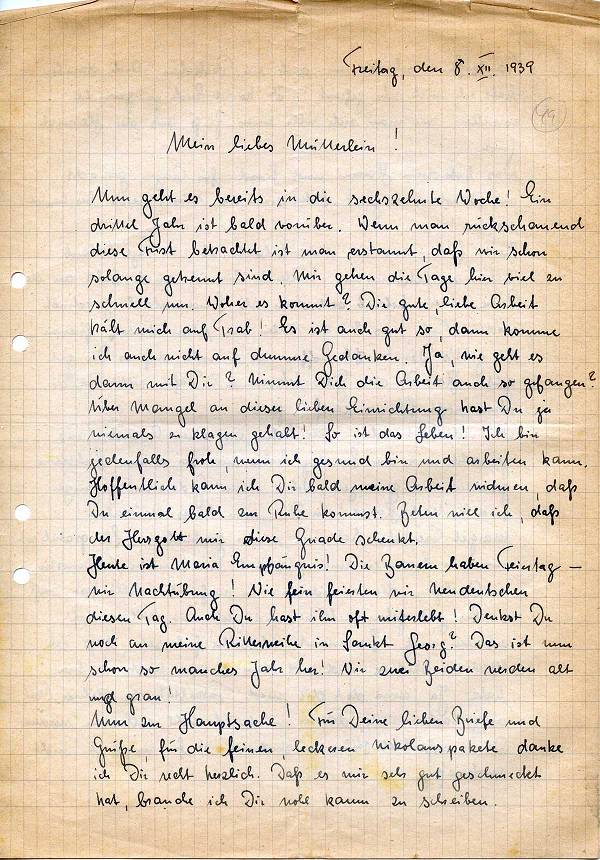 Freitag, den 8. XII. 1939
49
Mein liebes Mütterlein!
Nun geht es bereits in die sechszehnte Woche! Ein
drittel Jahr ist bald vorüber. Wenn man rückschauend
diese Frist betrachtet ist man erstaunt, daß wir schon
solange getrennt sind. Mir gehen die Tage hier viel zu
schnell um. Woher es kommt? Die gute, liebe Arbeit
hält mich auf Trab! Es ist auch gut so, dann komme
ich auch nicht auf dumme Gedanken. Ja, wie geht es
denn mit Dir? Nimmt Dich die Arbeit auch so gefangen?
Über Mangel an dieser lieben Einrichtung hast Du ja
niemals zu klagen gehabt! So ist das Leben! Ich bin
jedenfalls froh, wenn ich gesund bin und arbeiten kann.
Hoffentlich kann ich Dir bald meine Arbeit widmen, daß
Du einmal bald zur Ruhe kommst. Beten will ich, daß
der Herrgott mir diese Gnade schenkt.
Heute ist Maria Empfängnis! Die Bauern haben Feiertag –
wir Nachtübung! Wie fein feierten wir Neudeutschen
diesen Tag. Auch Du hast ihn oft miterlebt! Denkst Du
noch an meine Ritterweihe in Sankt Georg? Das ist nun
schon so manches Jahr her! Wir zwei Beiden werden alt
und grau!
Nun zur Hauptsache! Für Deine lieben Briefe und
Grüße, für die feinen, leckeren Nikolauspakete danke
ich Dir recht herzlich. Daß es mir stets gut geschmeckt
hat, brauche ich Dir wohl kaum zu schreiben.